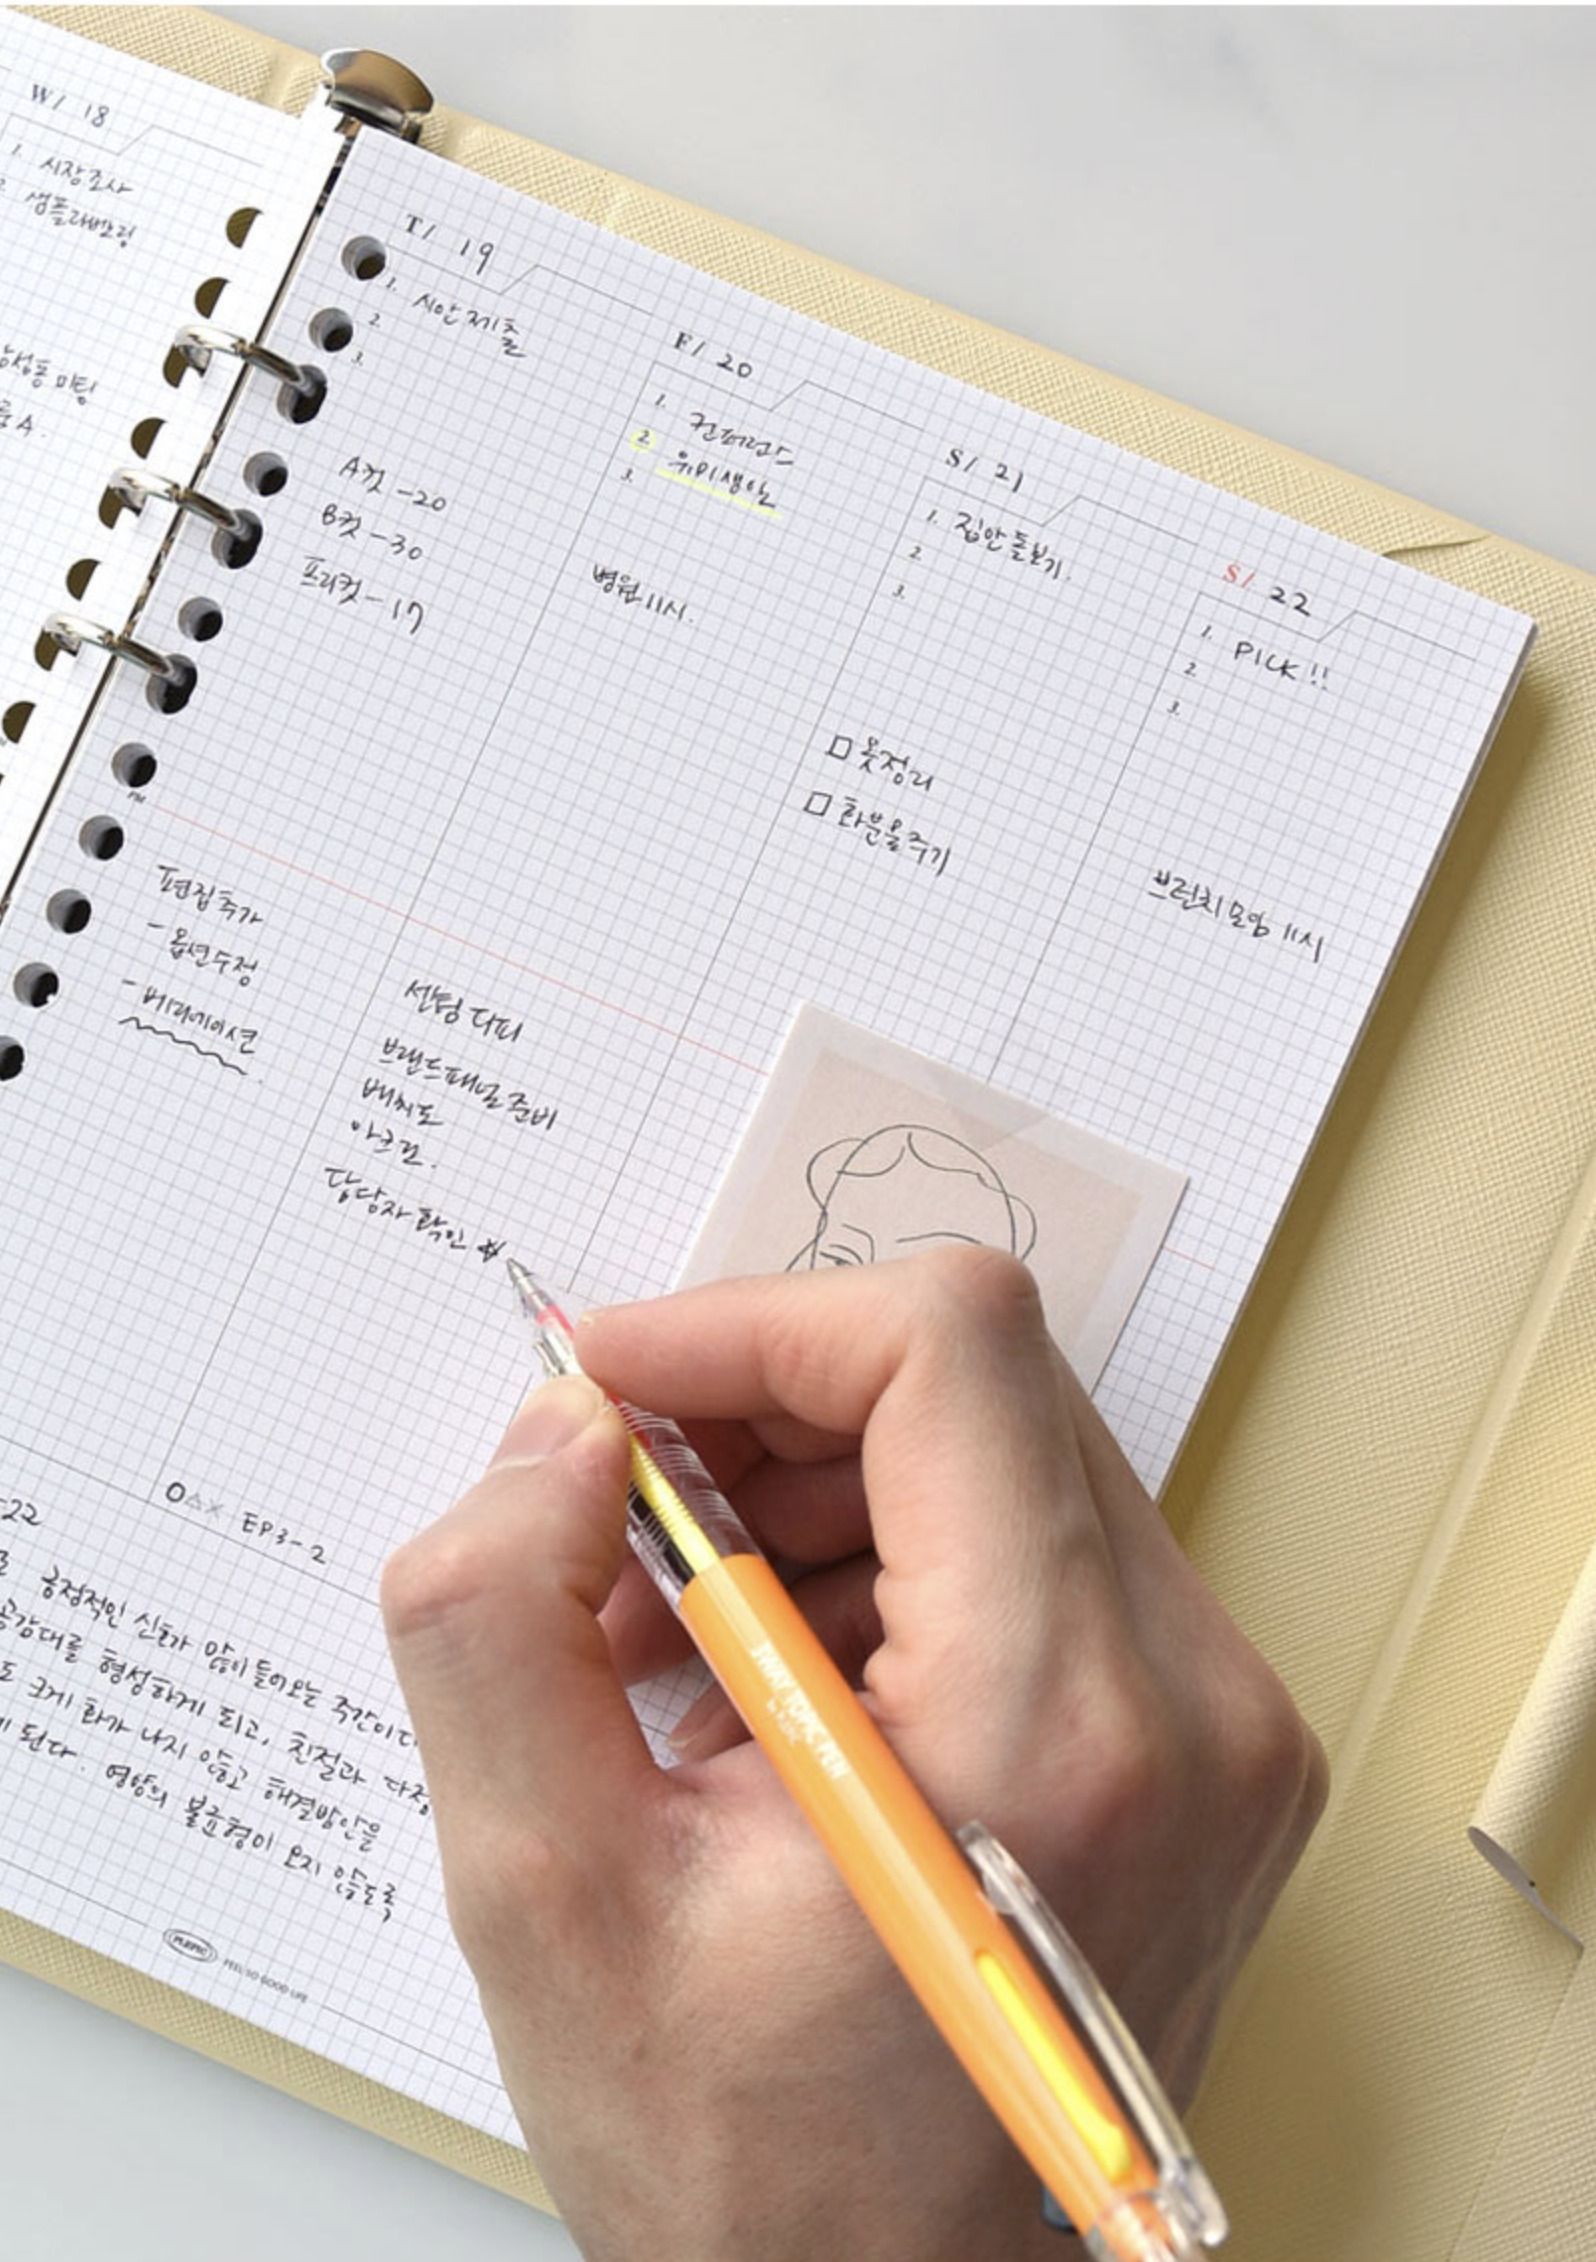 W/ 18
1. 시장조사
2. 샘플라벨링
미팅
A.
T/ 19
1. 시안 제출
2.
3.
A컷 -20
B컷 -30
프리컷 - 17
PM
편집추가
- 옵션수정
- 베리에이션
F/ 20
1. 컨퍼런스
2. 유미생일
3.
병원 11시.
브랜드패널 준비
배치도
아크릴.
담당자 확인
S/ 21
1. 집안돌보기.
2.
3.
□ 옷정리
□ 화분물주기
S/ 22
1. PICK !!
2.
3.
브런치모임 11시
-22
O△X EP3-2
긍정적인 신호가 많이 들어오는 주간이다
공감대를 형성하게 되고, 친절과 다정
도 크게 화가 나지 않고 해결방안을
게 된다. 영양의 불균형이 오지 않도록
PLEPIC FEEL SO GOOD LIFE
3WAY TOPIC PEN